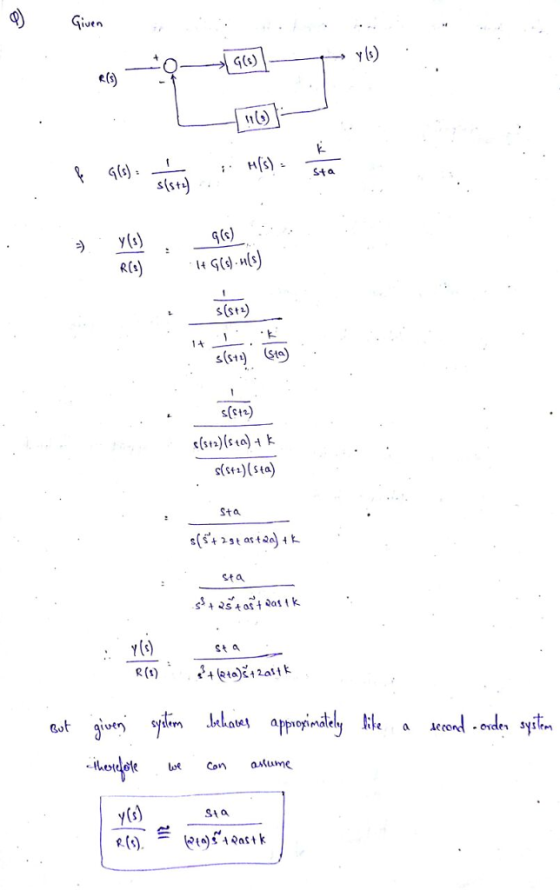 Q) Given
R(s) + - G(s) Y(s)
H(s)
& G(s) = 1/s(s+2) ; H(s) = k/s+a
⇒ Y(s)/R(s) = G(s)/1+G(s).H(s)
= 1/s(s+2) / 1+ 1/s(s+2) . k/(s+a)
= 1/s(s+2) / s(s+2)(s+a)+k / s(s+2)(s+a)
= s+a / s(s²+2s+as+2a)+k
= s+a / s³+2s²+as²+2as+k
∴ Y(s)/R(s) = s+a / s³+(2+a)s²+2as+k
But given system behaves approximately like a second-order system
therefore we can assume
Y(s)/R(s) ≅ s+a / (2+a)s²+2as+k